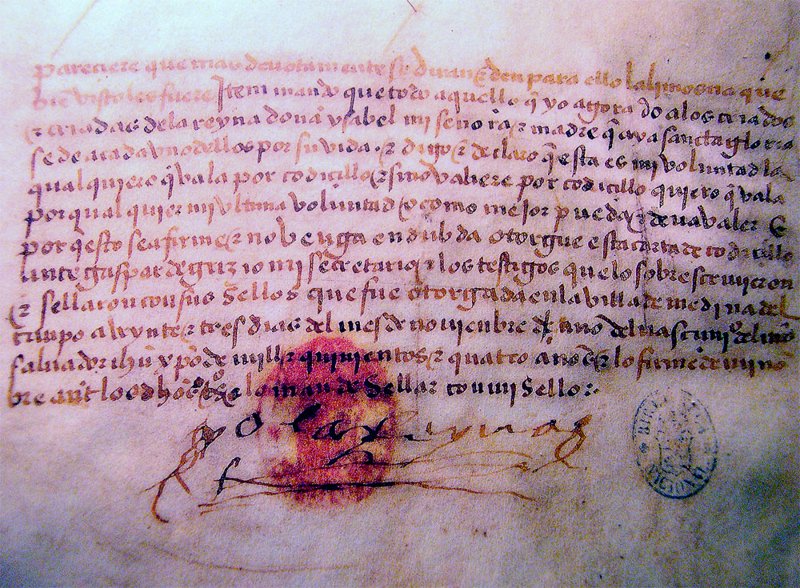 pareciere que mas devotamente se diran E den para ello la limosna que
bien visto les fuere Item mando que todo aquello q̃ yo agora do a los criados
E criadas de la reyna doña ysabel mi señora E madre q̃ aya santa gloria
se de a cada vno dellos por su vida E digo E declaro q̃ esta es mi voluntad la
qual quiero q̃ vala por codicillo E si no valiere por codicillo quiero q̃ vala
por qual quier mi vltima voluntad o como mejor pueda E deua valer E
por q̃ esto sea firme E no venga en dubda otorgue esta carta de codicillo
ante gaspar de grizio mi secretario E los testigos que lo sobrescriuieron
E sellaron con sus sellos que fue otorgada en la villa de medina del
campo a veynte E tres dias del mes de noviembre del año del nascimi° del nr̃o
saluador ihũ xp̃o de mill E quinientos E quatro años E lo firme de mi nõ
bre ant los dhos E lo mande sellar con mi sello
yo la Reyna